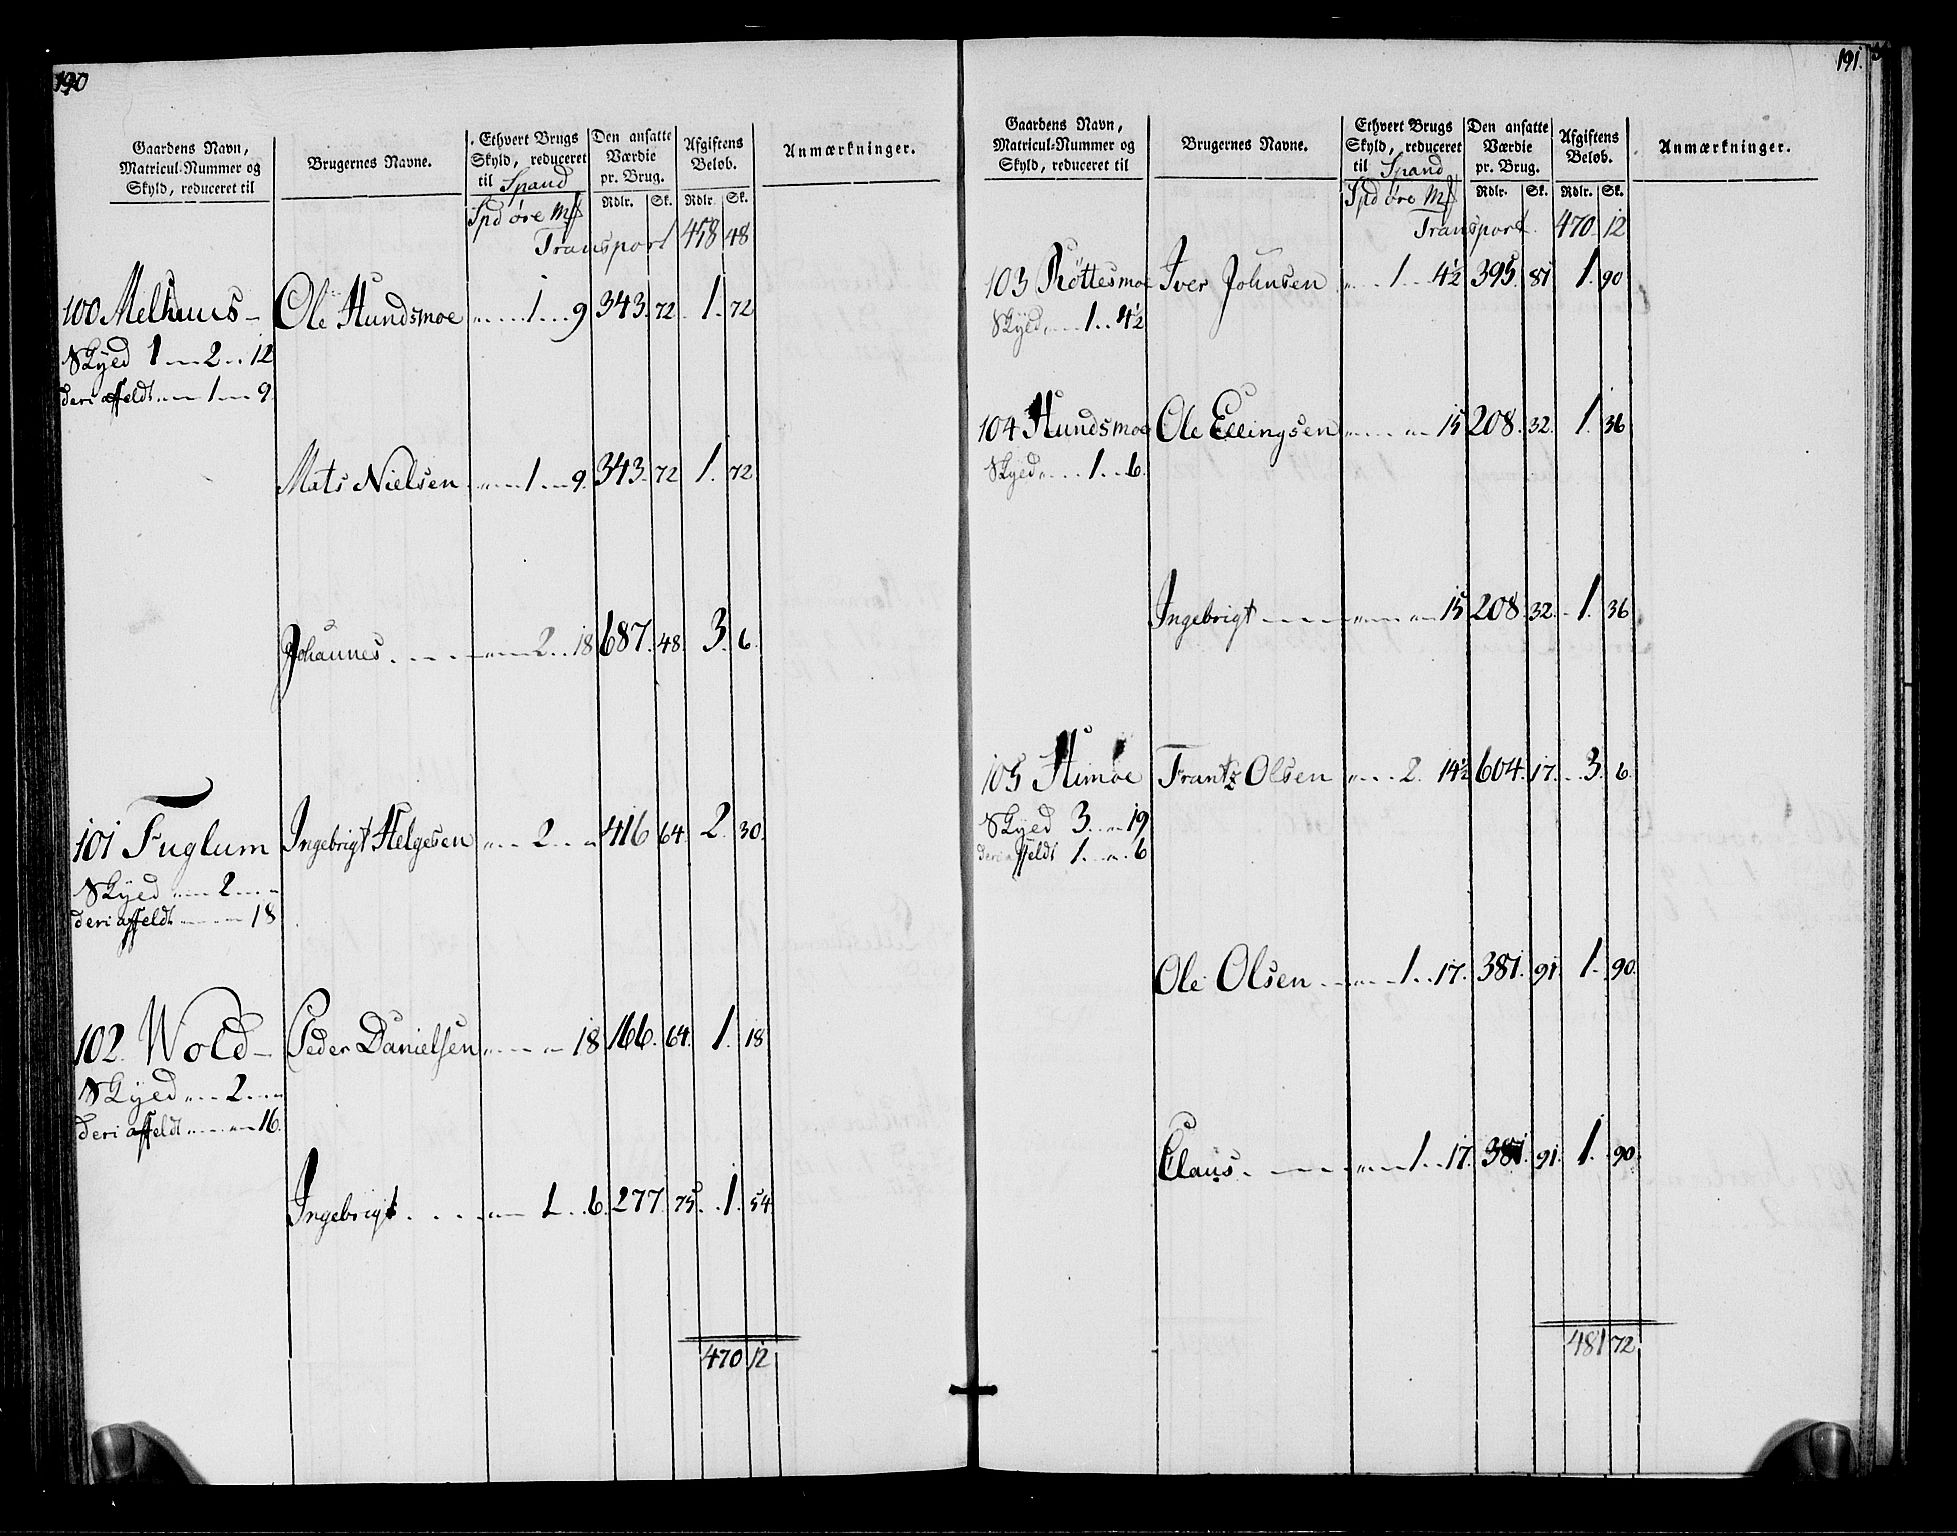 190
Gaardens Navn, Matricul-Nummer og Skyld, reduceret til
Brugernes Navne.
Ethvert Brugs Skyld, reduceret til Spand
Den ansatte Værdie pr. Brug.
Afgiftens Beløb.
Anmærkninger.
Spd øre Mk Rdlr. Sk. Rdlr. Sk.
Transport 458 48
100 Melhuus Ole Hundsmoe 1 9 343. 72 1. 72
Skyld 1 2 12
deri affeldt 1 9
Mats Nielsen 1 9. 343. 72 1. 72
Johannes 2 18 687. 48. 3. 6.
101 Fuglum Ingebrigt Helgesen 2 " 416 64 2. 30.
Skyld 2
deri affeldt 18
102. Wold Peder Danielsen 18 166. 64. 1. 18
Skyld 2
deri affeldt 16.
Ingebrigt 1 6. 277. 75. 1. 54
470 12
191.
Gaardens Navn, Matricul-Nummer og Skyld, reduceret til
Brugernes Navne.
Ethvert Brugs Skyld, reduceret til Spand
Den ansatte Værdie pr. Brug.
Afgiftens Beløb.
Anmærkninger.
Spd øre Mk Rdlr. Sk. Rdlr. Sk.
Transport. 470. 12
103 Röttesmoe Iver Johnsen 1 4½ 395. 87 1. 90
Skyld 1 4½
104 Hundsmoe Ole Ellingsen 15 208. 32. 1. 36
Skyld 1 6.
Ingebrigt 15 208. 32. 1. 36
105 Himoe Frantz Olsen 2. 14½ 604. 17. 3. 6.
Skyld 3 19
deri affeldt 1 6
Ole Olsen 1 17. 381. 91. 1. 90.
Claus 1 17. 381. 91. 1. 90.
481 72